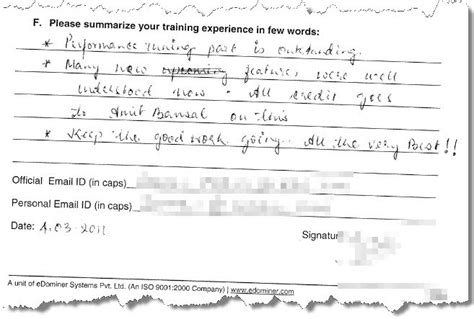 F. Please summarize your training experience in few words:
* Performance tuning part is outstanding.
* Many new upcoming features were well
understood now - All credit goes
to Amit Bansal on this
* Keep the good work going.. All the very Best!!
Official Email ID (in caps)
Personal Email ID (in caps)
Date: 4.03.2011
Signatur
A unit of eDominer Systems Pvt. Ltd. (An ISO 9001:2000 Company) | www.edominer.com